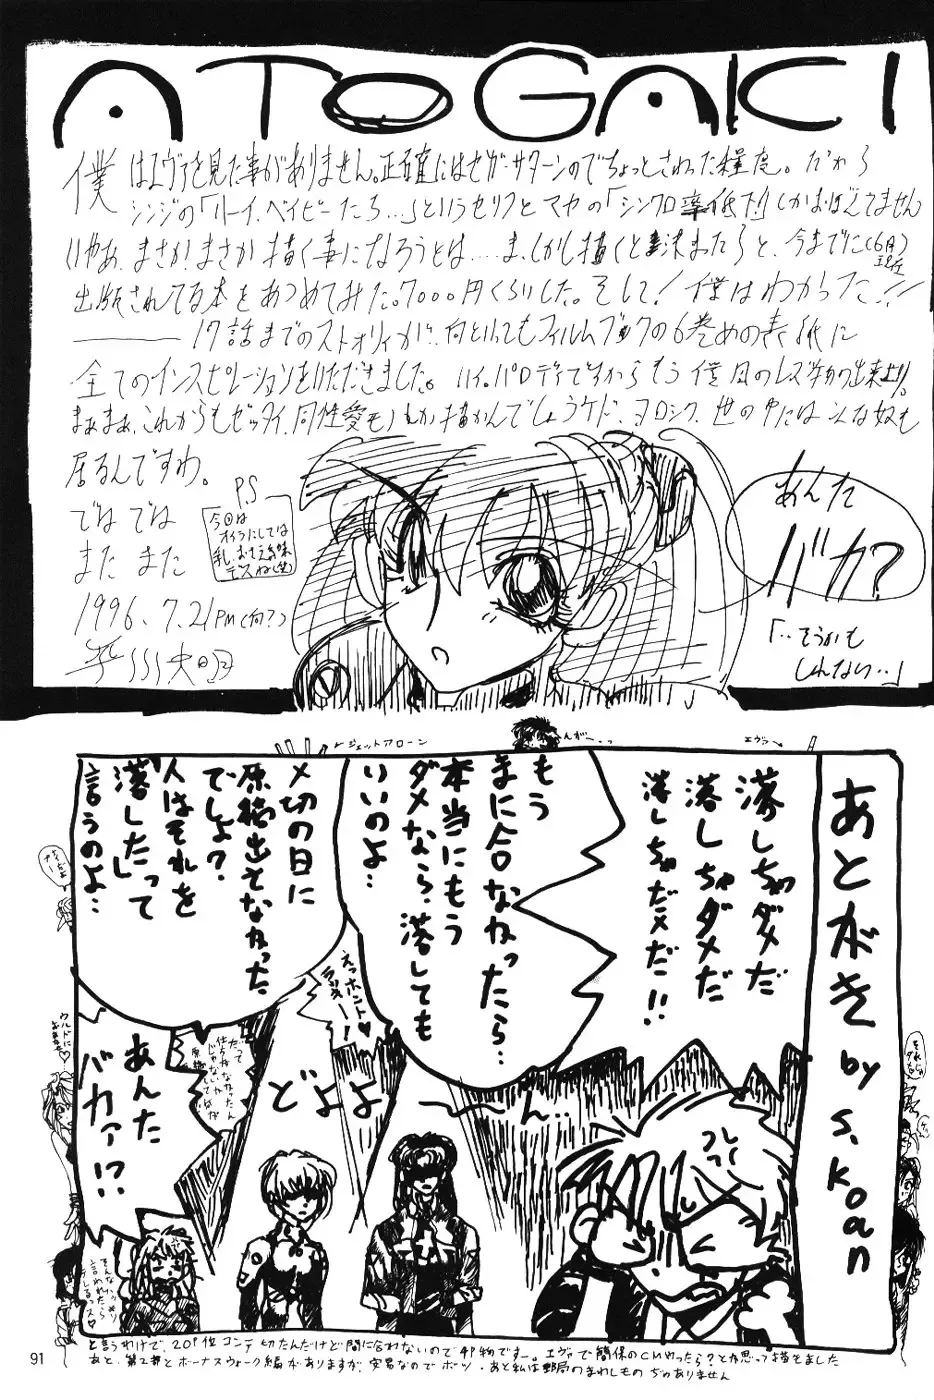 ATOGAKI
僕はエヴァを見た事がありません。正確にはセガ・サターンのでちょっとさわった程度。だから
シンジの「ハーイ、ベイビーたち…」というセリフとマヤの「シンクロ率低下!」しかおぼえてません
いやあ、まさか、まさか描く事になろうとは……ま、しかし描くと決まったらと、今までに(6月)現在
出版されてる本をあつめてみた。7000円くらいした。そして!僕はわかった!!
―――17話までのストオリィガ!何といってもフィルムブックの6巻めの表紙に
全てのインスピレーションをいただきました。ハイ。パロディですからもう僕風のレズ物の出来上り。
まぁまぁ、これからもゼッタイ、同性愛モノしか描かんでしょうケド、ヨロシク、世の中にはこんな奴も
居るんですわ。
ではでは
また また
1996.7.21 PM(何?)
P.S
今回は
オイラにしては
乳おさえ気味
デスね(笑)
あんた
バカ?
「‥そうかも
しれない‥」
←ジェットアローン
んがー‥っ
エヴァ→
あとがき by S.Koan
落しちゃダメだ
落しちゃダメだ
落しちゃだメだ!!
もう
まに合なかったら…
本当にもう
ダメなら、落しても
いいのよ…
〆切の日に
原稿出せなかった
でしょ?
人はそれを
「落した」って
言うのよ…
えっホント♥
ラッキー!
だって
仕方なかったん
じゃないかぁ
あんた
バカァ!?
どよよ〜ん…
ウルドに
おまかせ♥
そんなハッキリ
言われたら
テレるっス♥
と言うわけで、20P位コンテ切たんだけど間に合わないので4P物ですー。エヴァで簡保のCMやったら?とか思って描きました
あと、第2部とボーナスウォーク編がありますが、安易なのでボツ・あと私は郵局のまわしもの ぢゃありません
91